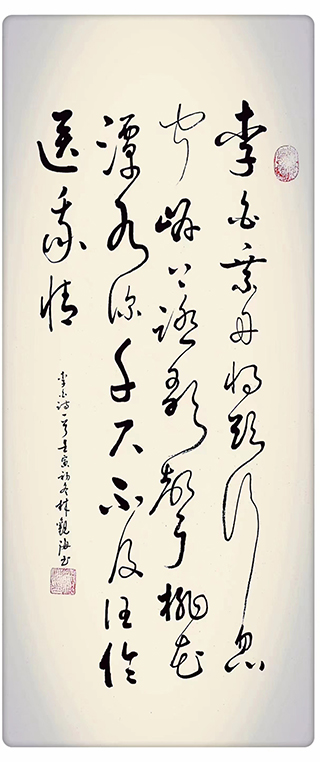 李白乘舟將欲行忽
聞岸上踏歌聲桃花
潭水深千尺不及汪倫
送我情
李白詩一首壬寅初冬林觀海書